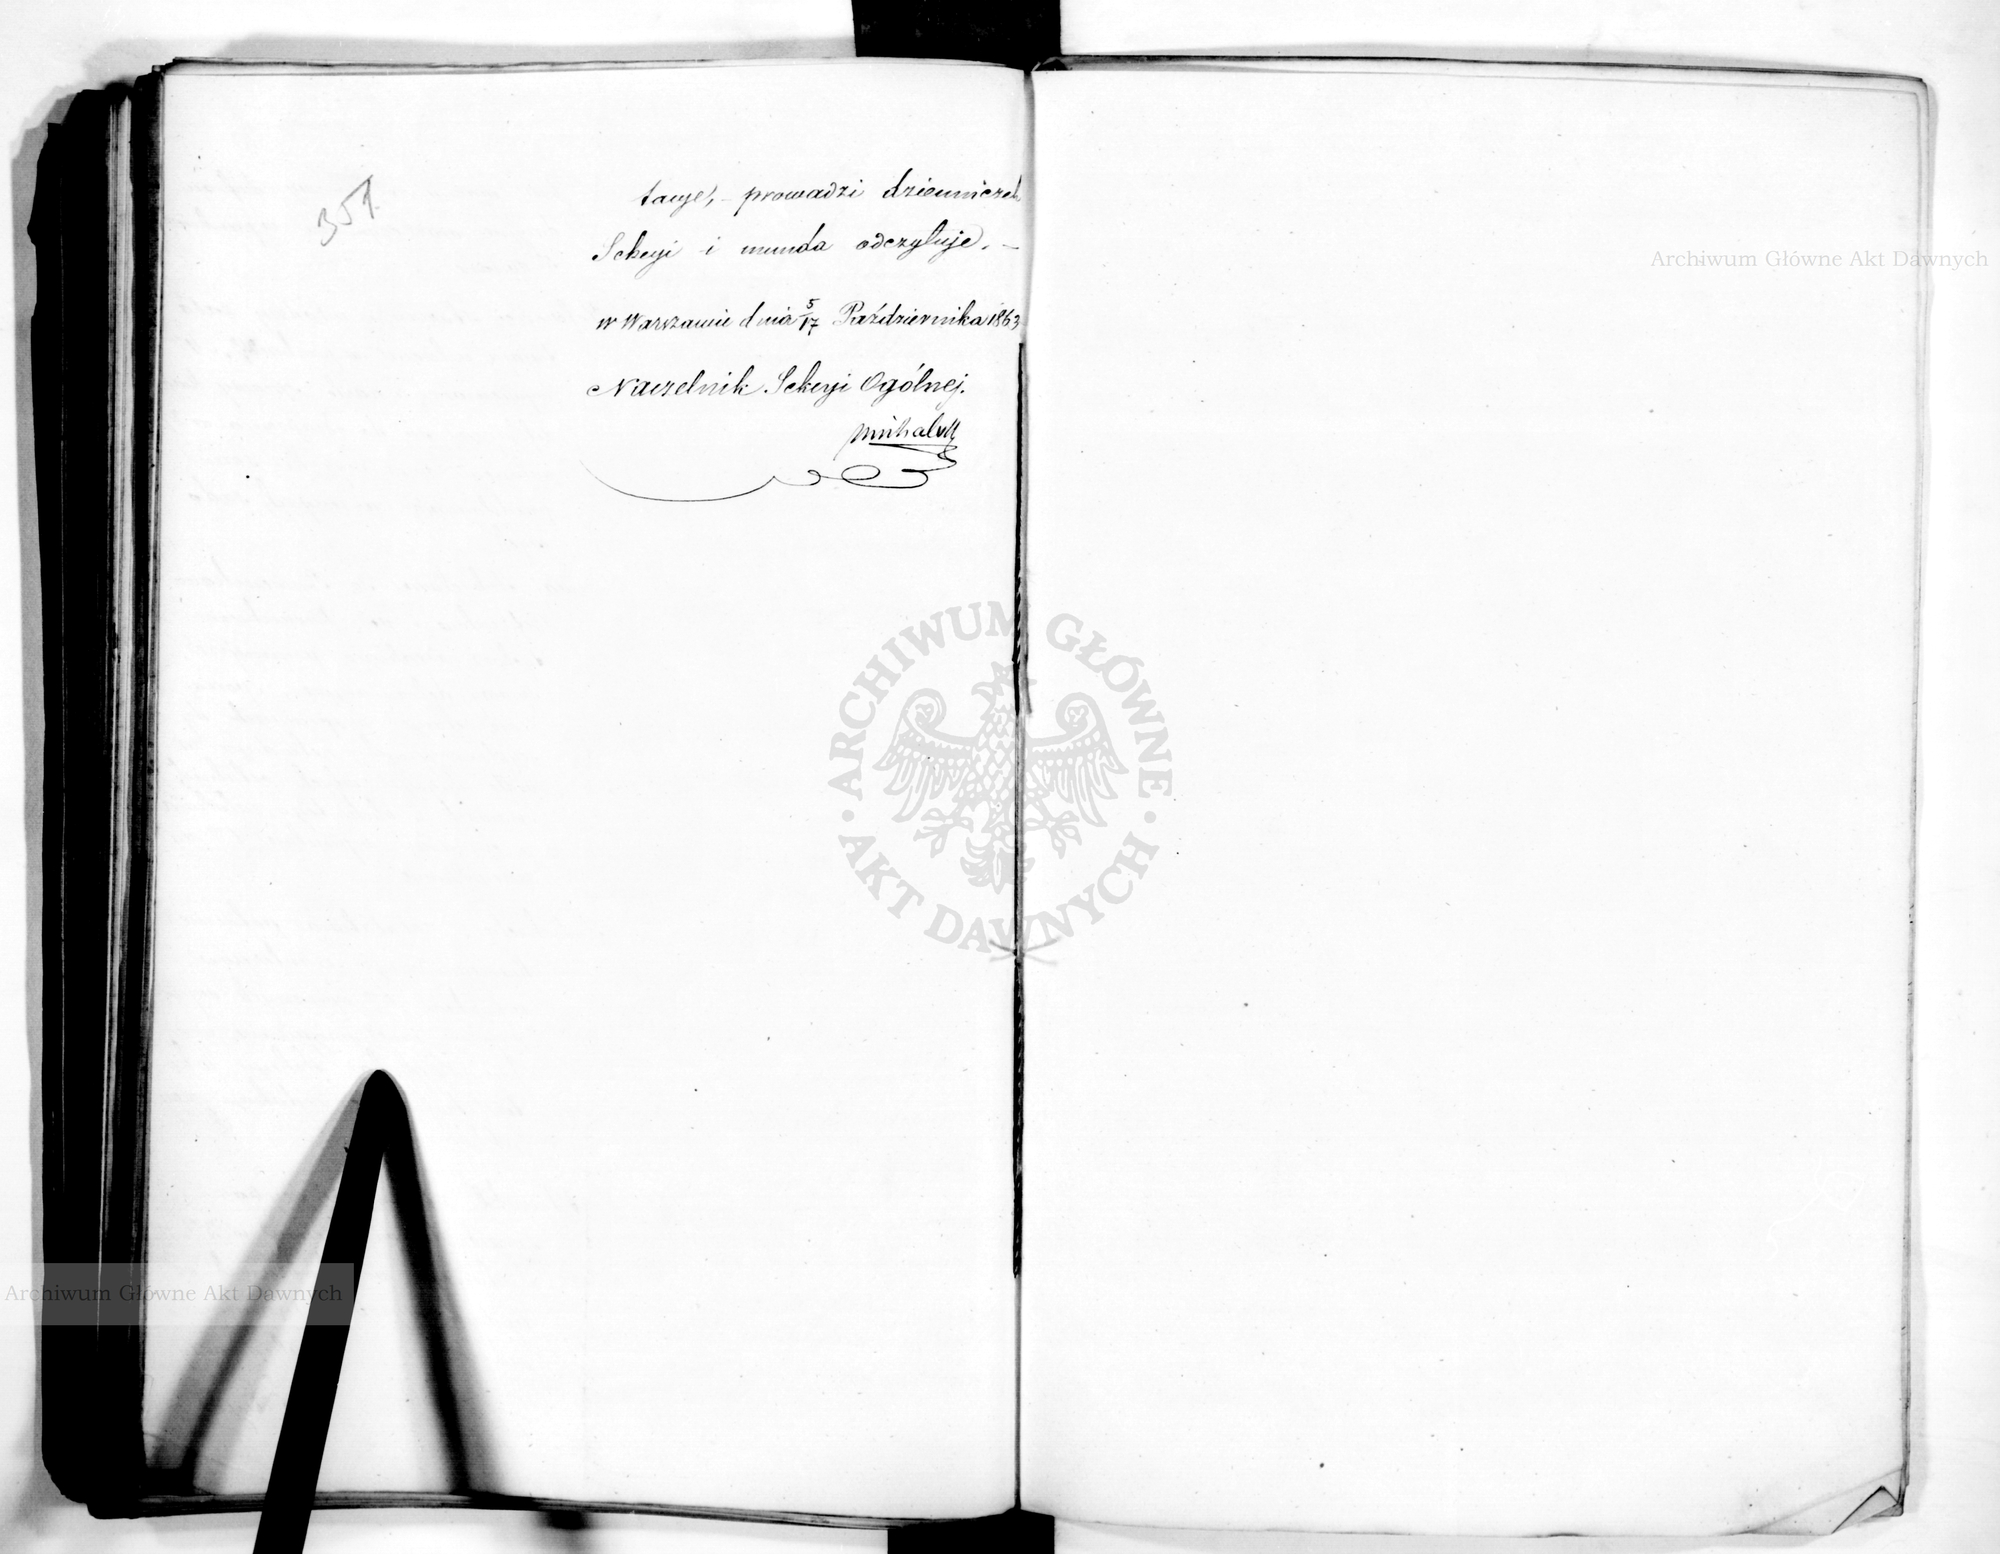 351.
tacye, – prowadzi dzienniczek
Sekcyi i munda odczytuje. –
w Warszawie dnia 5/17 Października 1863
Naczelnik Sekcyi Ogólnej.
Archiwum Główne Akt Dawnych
ARCHIWUM GŁÓWNE
· AKT DAWNYCH ·
Archiwum Główne Akt Dawnych